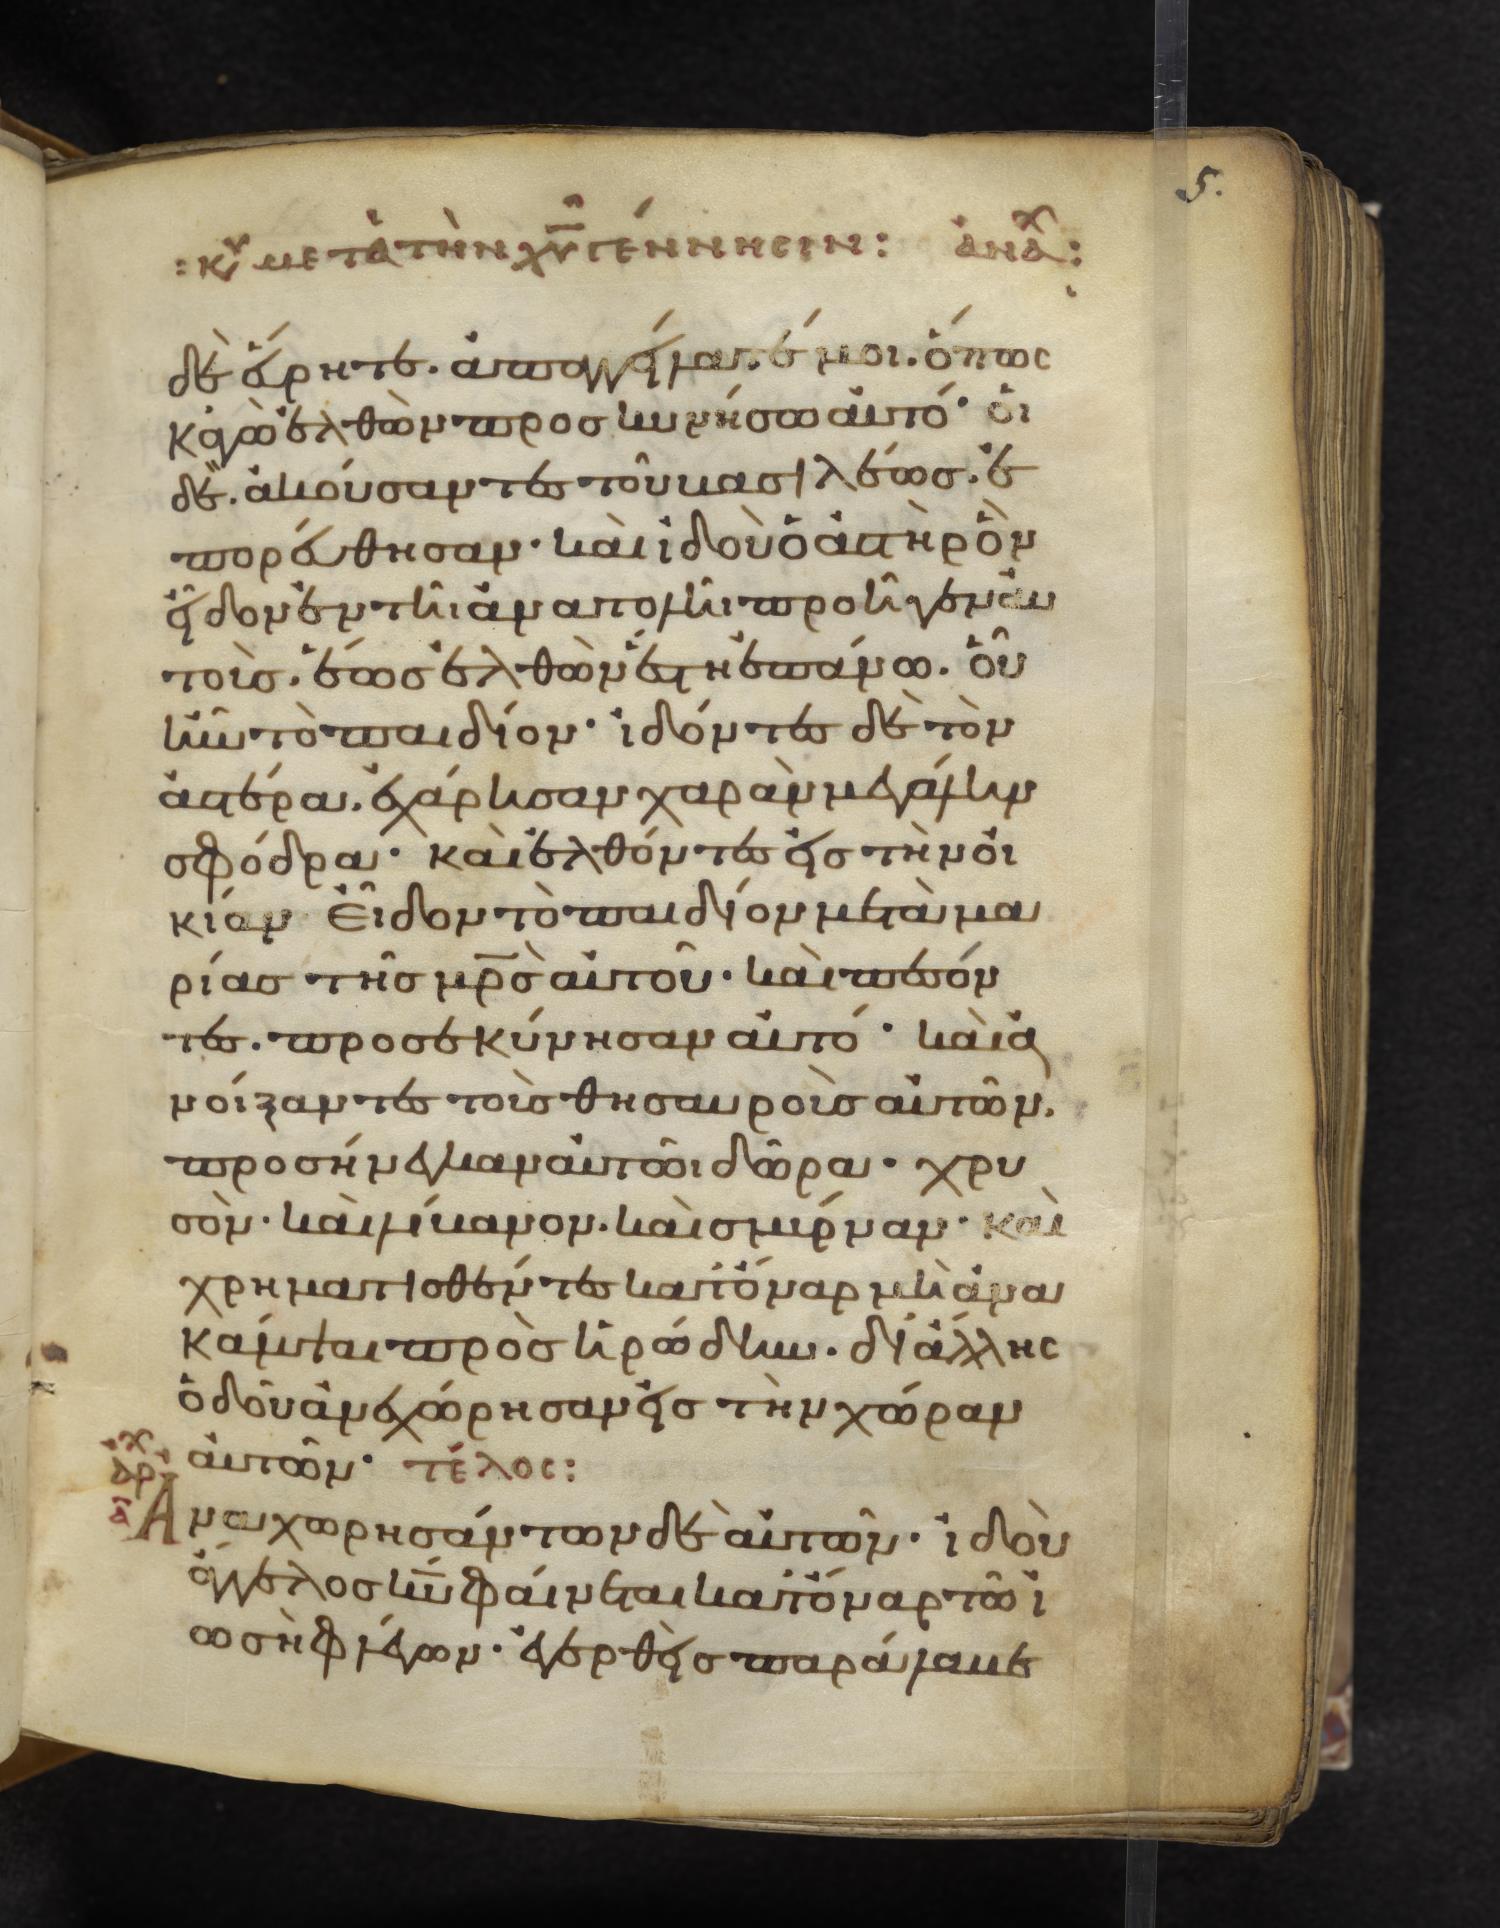 5.
: κυ μετὰ τὴν χυ γέννησιν : ἀνα :
δὲ εὕρητε. ἀπαγγείλατέ μοι. ὅπως
κἀγὼ ἐλθὼν προσκυνήσω αὐτό· οἱ
δὲ. ἀκούσαντες τοῦ βασιλέως. ἐ
πορεύθησαν· καὶ ἰδοὺ ὁ ἀστὴρ ὃν
εἶδον ἐν τῆι ἀνατολῆι προῆγεν αὐ
τοὺς. ἕως ἐλθὼν ἔστη ἐπάνω. οὗ
ἦν τὸ παιδίον· ἰδόντες δὲ τὸν
ἀστέρα. ἐχάρησαν χαρὰν μεγάλην
σφόδρα· καὶ ἐλθόντες εἰς τὴν οἰ
κίαν εἶδον τὸ παιδίον μετὰ μα
ρίας τῆς μρς αὐτοῦ· καὶ πεσόν
τες. προσεκύνησαν αὐτό· καὶ ἀ
νοίξαντες τοὺς θησαυροὺς αὐτῶν.
προσήνεγκαν αὐτῶι δῶρα· χρυ
σὸν· καὶ λίβανον. καὶ σμύρναν· καὶ
χρηματισθέντες κατ' ὄναρ μὴ ἀνα
κάμψαι πρὸς ἡρώδην. δι' ἄλλης
ὁδοῦ ἀνεχώρησαν εἰς τὴν χώραν
αὐτῶν· τέλος :
ἀρχ
Ἀναχωρησάντων δὲ αὐτῶν· ἰδοὺ
ἄγγελος κυ φαίνεται κατ' ὄναρ τῶ ἰ
ωσὴφ λέγων· ἐγερθεὶς παράλαβε